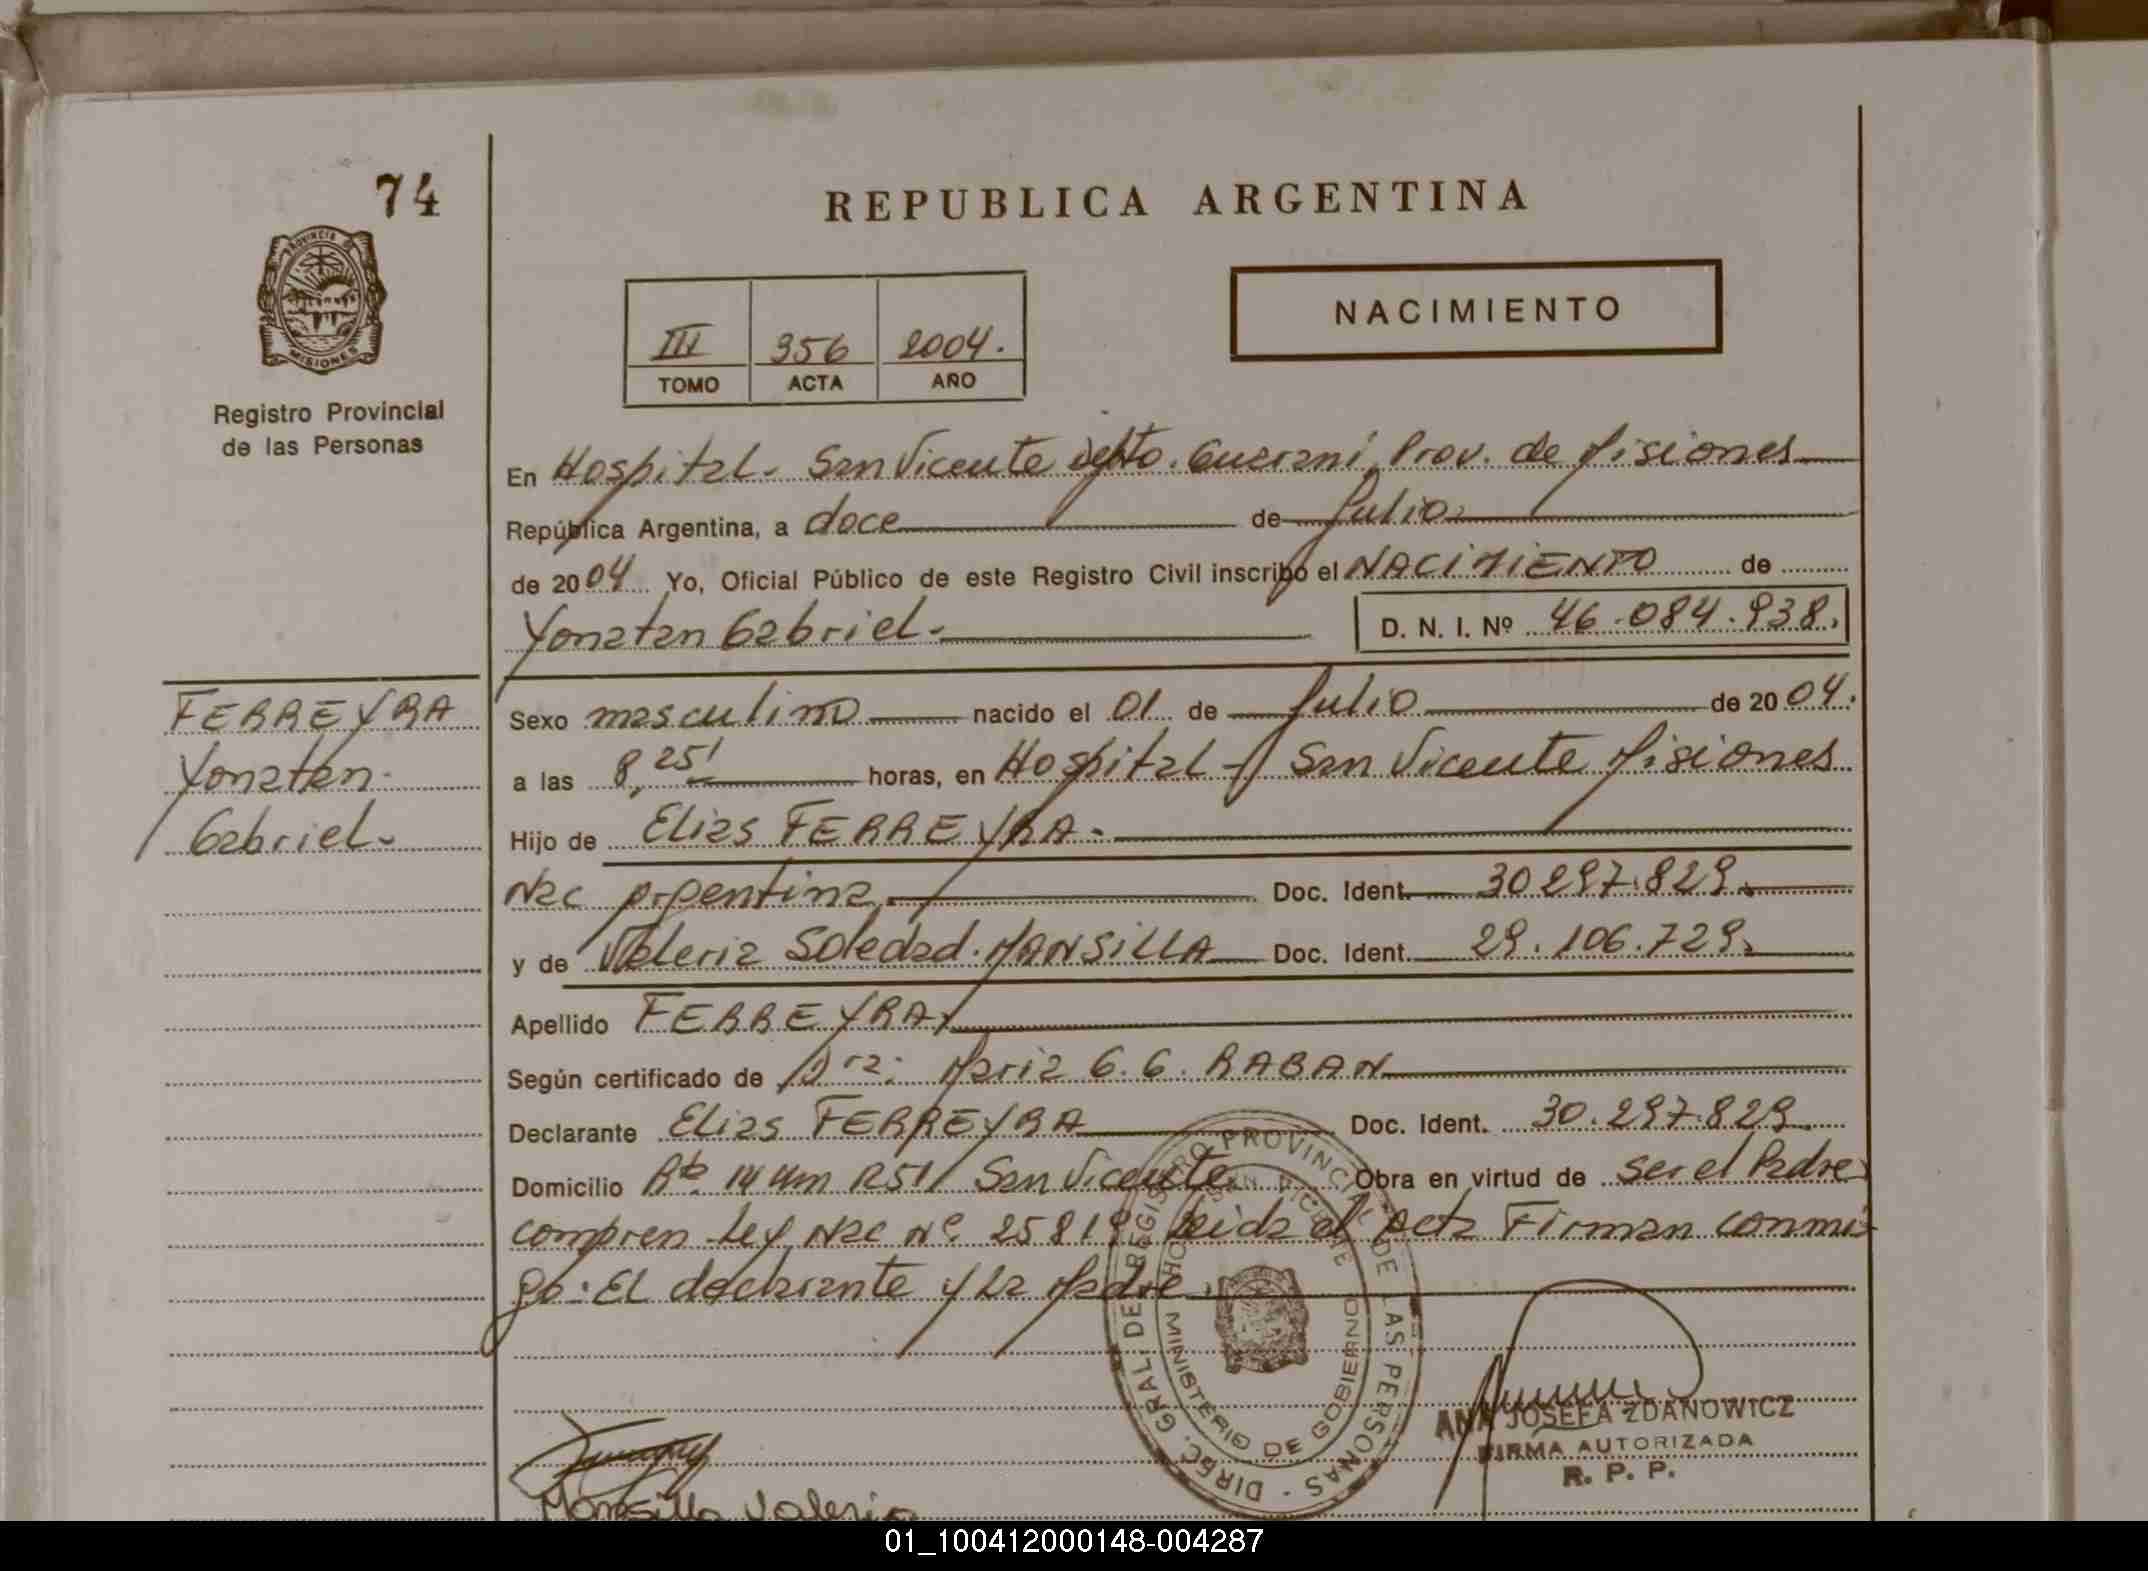 74
REPUBLICA ARGENTINA
PROVINCIA DE
MISIONES
Registro Provincial
de las Personas
III 356 2004.
TOMO ACTA AÑO
NACIMIENTO
En Hospital - San Vicente Depto. Guaraní, Prov. de Misiones
República Argentina, a doce de Julio
de 2004 Yo, Oficial Público de este Registro Civil inscribo el NACIMIENTO de
Yonatan Gabriel.-
D. N. I. Nº 46.084.938.
FERREYRA
Yonatan
Gabriel.-
Sexo masculino nacido el 01 de Julio de 2004.
a las 8,25' horas, en Hospital - San Vicente Misiones
Hijo de Elias FERREYRA.-
Nac Argentina Doc. Ident. 30.297.829.
y de Valeria Soledad MANSILLA Doc. Ident. 29.106.729.
Apellido FERREYRA
Según certificado de Dra: Maria G. G. RABAN
Declarante Elias FERREYRA Doc. Ident. 30.297.829
Domicilio Rta 14 Km 1251 San Vicente Obra en virtud de ser el Padre
compren Ley Nac Nº 25819 Leida el Acta Firman conmi
go: El declarante y La Madre.
DIREC. GRAL. DE REGISTRO PROVINCIAL DE LAS PERSONAS
MINISTERIO DE GOBIERNO
ANA JOSEFA ZDANOWICZ
FIRMA AUTORIZADA
R. P. P.
Mansilla Valeria
01_100412000148-004287